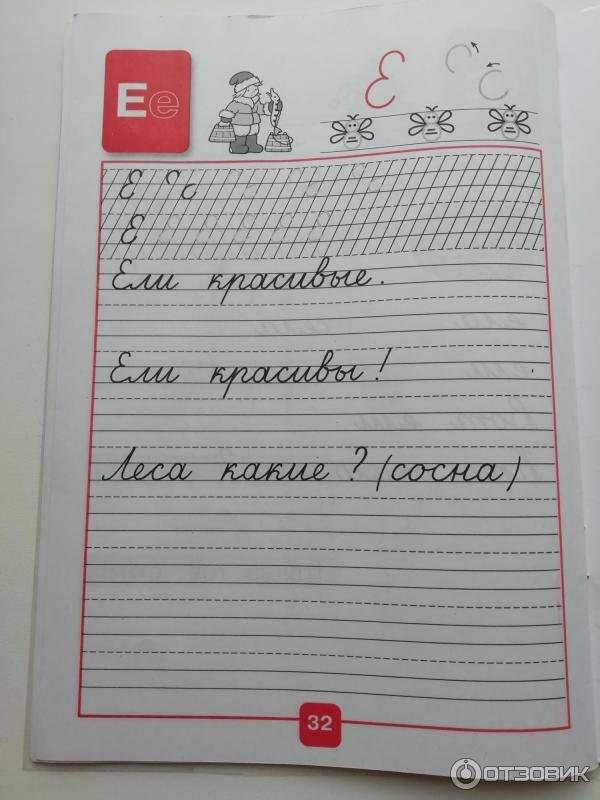 Ее
Е
Е Е с
Е
Ели красивые.
Ели красивы!
Леса какие? (сосна)
32
ОТЗОВИК